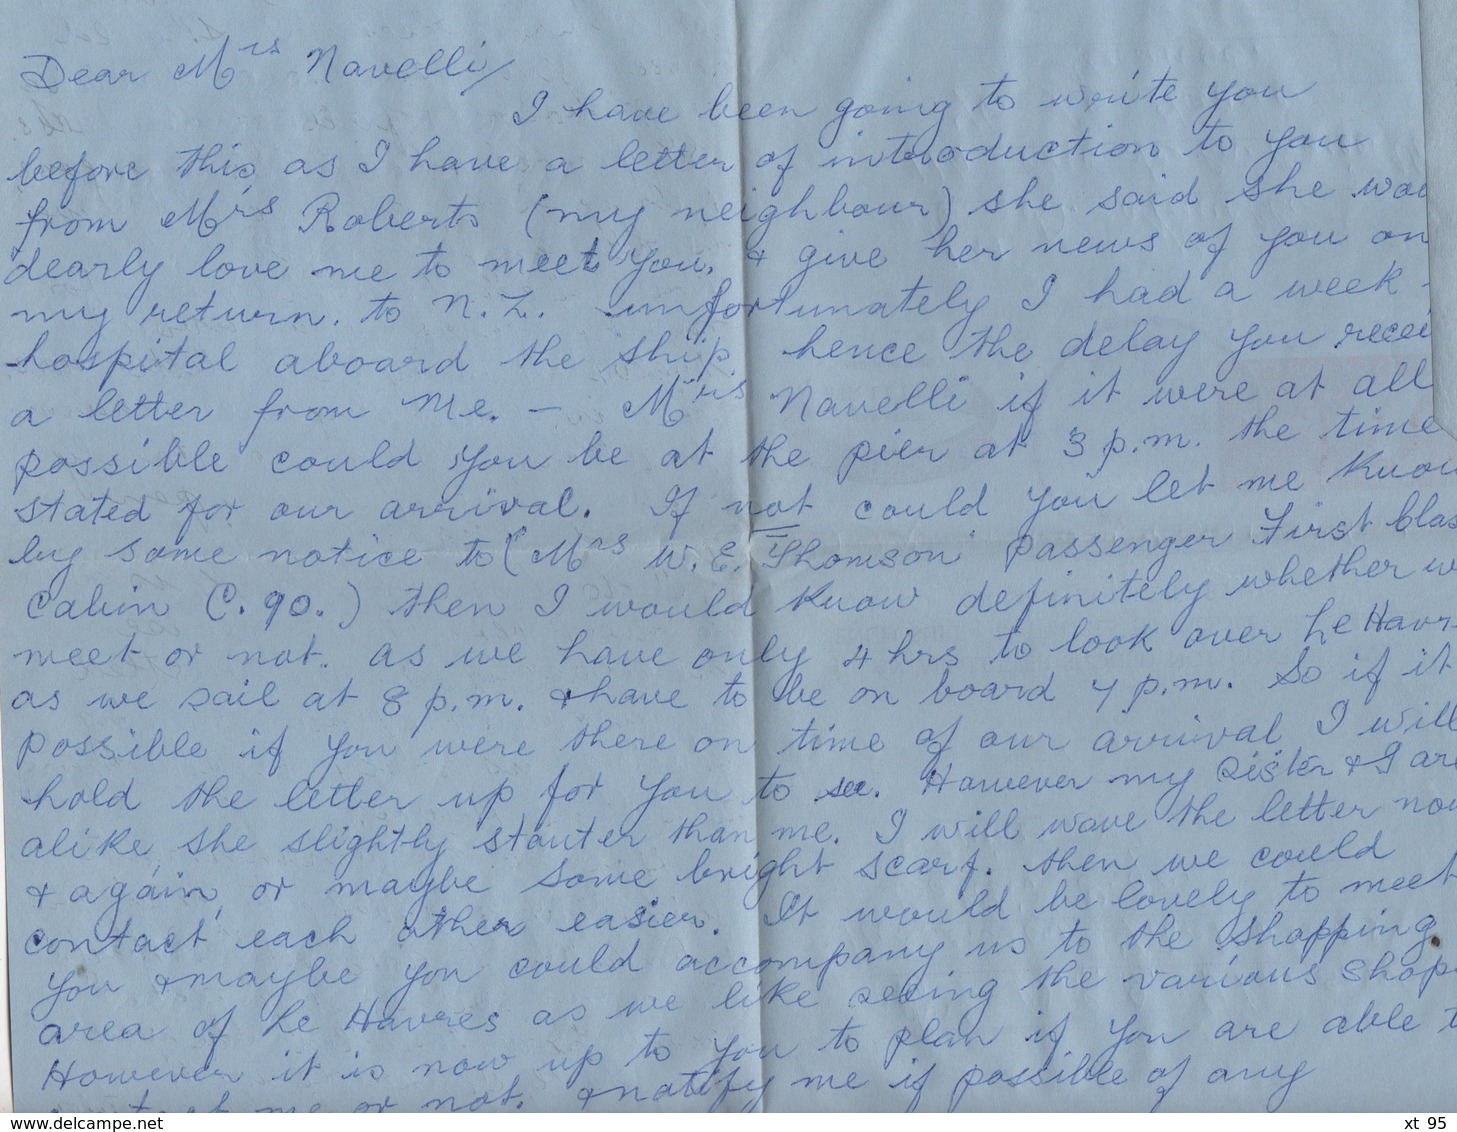 Dear Mrs Navelli,
I have been going to write you
before this, as I have a letter of introduction to you
from Mrs Roberts (my neighbour) she said she wou
dearly love me to meet you, & give her news of you on
my return. to N.Z. unfortunately I had a week
hospital aboard the ship, hence the delay you recei
a letter from me. — Mrs Navelli if it were at all
possible could you be at the pier at 3 p.m. the time
stated for our arrival. If not could you let me know
by some notice to (Mrs W.E. Thomson passenger First Clas
Cabin C.90.) then I would know definitely whether w
meet or not. as we have only 4 hrs to look over he Havr
as we sail at 8 p.m. & have to be on board 7 p.m. So if it
possible if you were there on time of our arrival I will
hold the letter up for you to see. However my Sister & I are
alike, she slightly stouter than me. I will wave the letter now
& again, or maybe some bright scarf. then we could
contact each other easier. It would be lovely to meet
you & maybe you could accompany us to the shopping
area of he Havres as we like seeing the various shops
However it is now up to you to plan if you are able t
me or not. & notify me if possible of any
www.delcampe.net
xt 95